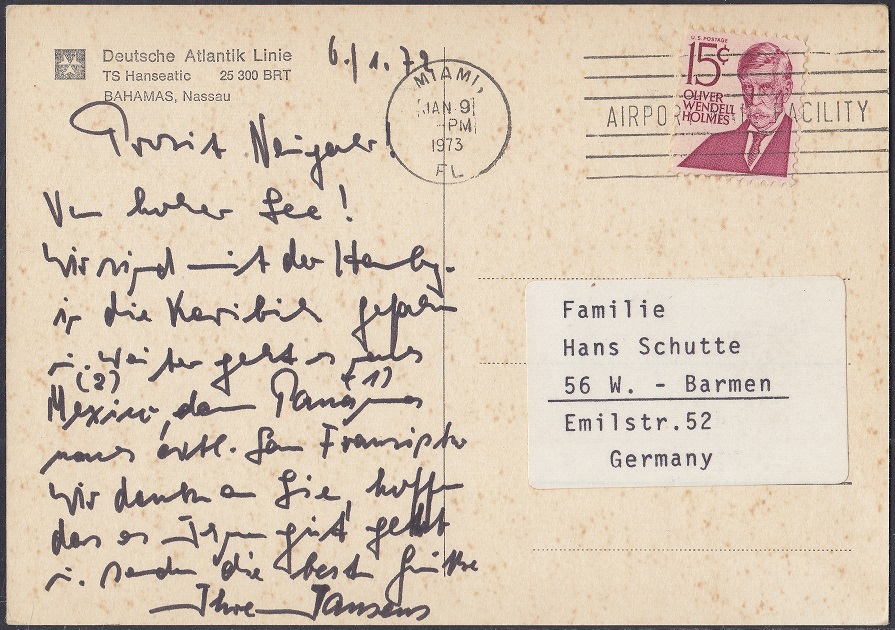 Deutsche Atlantik Linie
TS Hanseatic 25 300 BRT
BAHAMAS, Nassau
6./1.72
MIAMI,
JAN 9
-PM
1973
FL
AIRPO ACILITY
U.S. POSTAGE
15¢
OLIVER
WENDELL
HOLMES
Prosit Neujahr!
Von hoher See!
Wir sind mit der Hambg.
in die Karibik gefahren
u. weiter geht es nach
(2) (1)
Mexico, dann Panama
nach San Franzisko
Wir denken an Sie, hoffen
das es Ihnen gut geht
u. senden die besten Grüße
Ihre Jansens
Familie
Hans Schutte
56 W. - Barmen
Emilstr.52
Germany